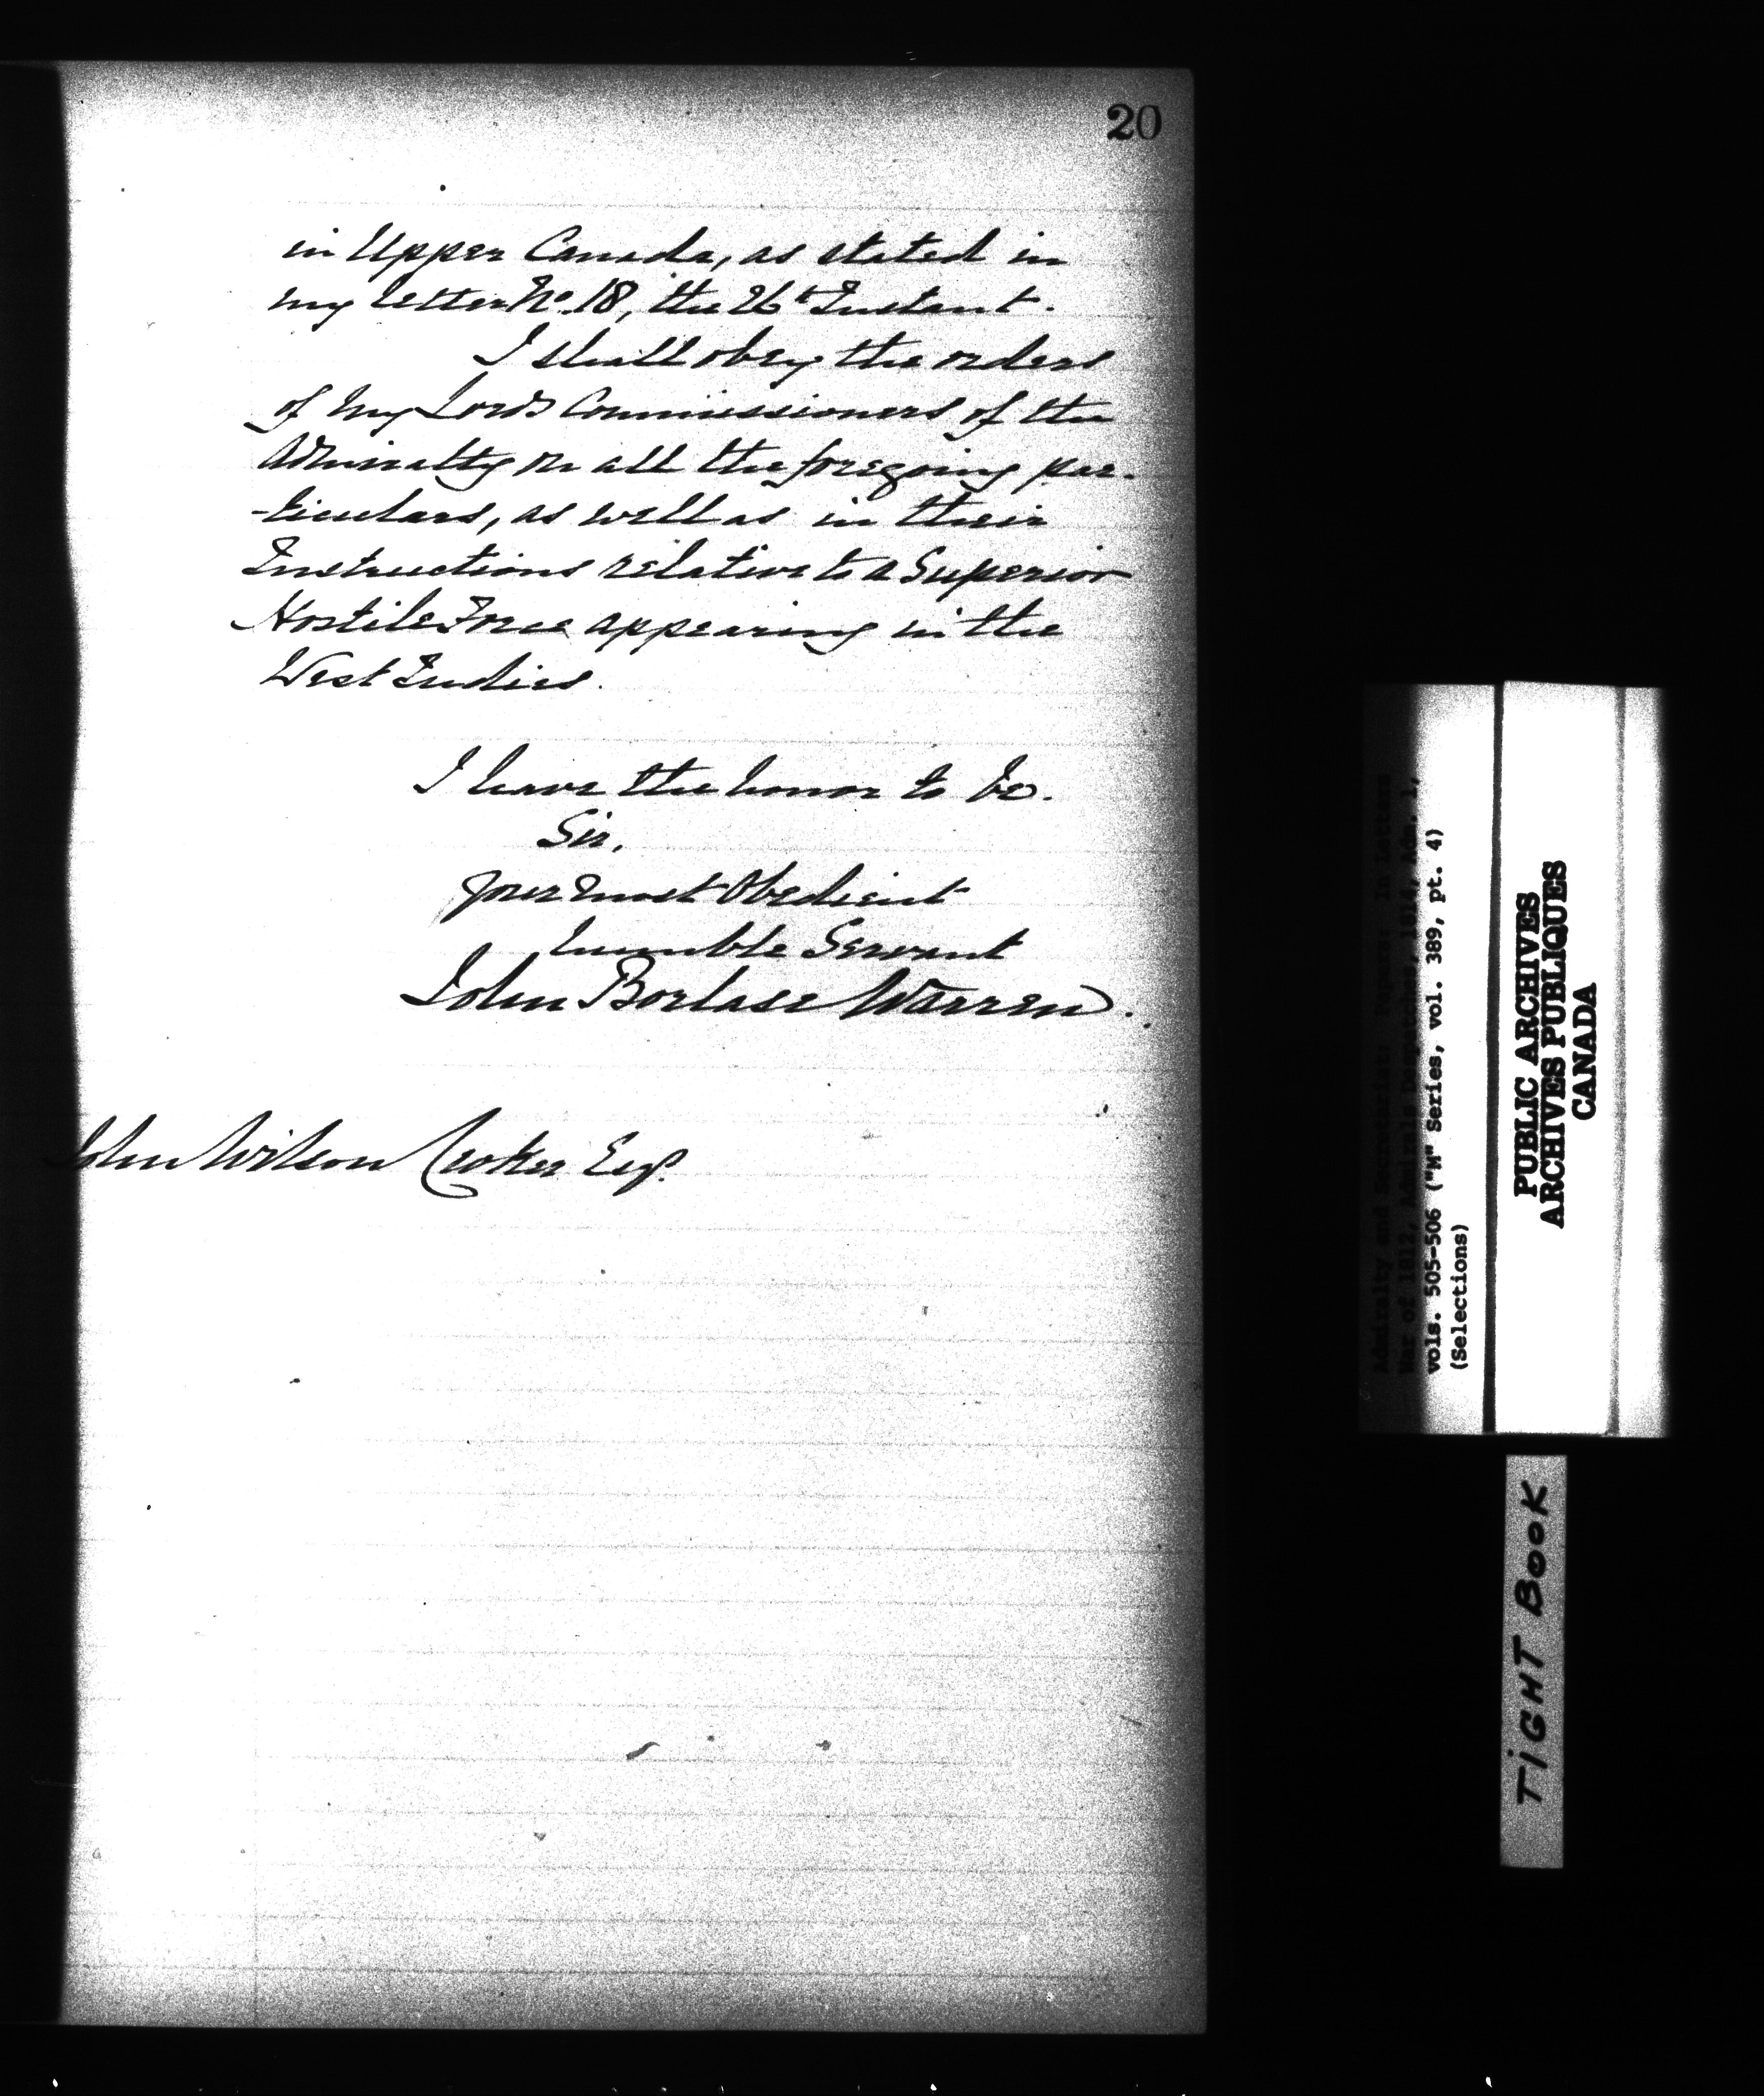 20
in Upper Canada, as stated in
my letter No. 18, the 26t Instant.
I shall obey the orders
of my Lords Commissioners of the
Admiralty on all the foregoing par-
-ticulars, as well as in their
Instructions relative to a Superior
Hostile Force appearing in the
West Indies.
I have the honor to be.
Sir,
your most Obedient
humble Servant
John Borlase Warren.
John Wilson Croker Esqr.
Admiralty and Secretariat: Papers: In Letters
War of 1812, Admirals Despatches, 1814, Adm. 1,
vols. 505-506 ("M" Series, vol. 389, pt. 4)
(Selections)
PUBLIC ARCHIVES
ARCHIVES PUBLIQUES
CANADA
TIGHT BOOK